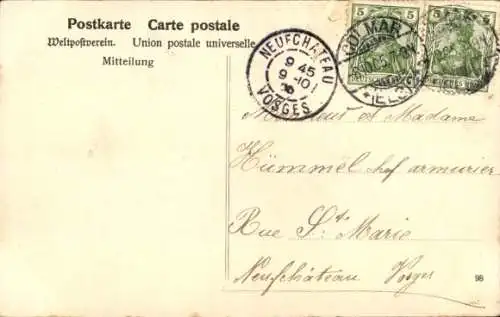 Postkarte Carte postale
Weltpostverein. Union postale universelle.
Mitteilung
NEUFCHATEAU
9 45
9-10
VOSGES
COLMAR
5 5
5 5
Monsieur et Madame
Hümmel chef armurier
Rue St Marie
Neufchâteau Vosges
98